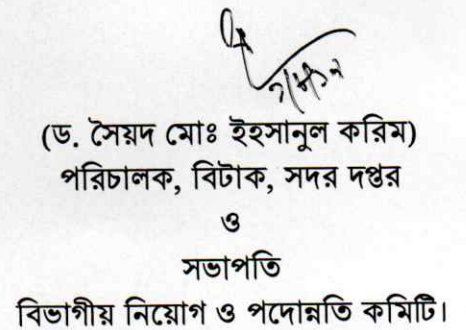 (ড. সৈয়দ মোঃ ইহসানুল করিম)
পরিচালক, বিটাক, সদর দপ্তর
ও
সভাপতি
বিভাগীয় নিয়োগ ও পদোন্নতি কমিটি।